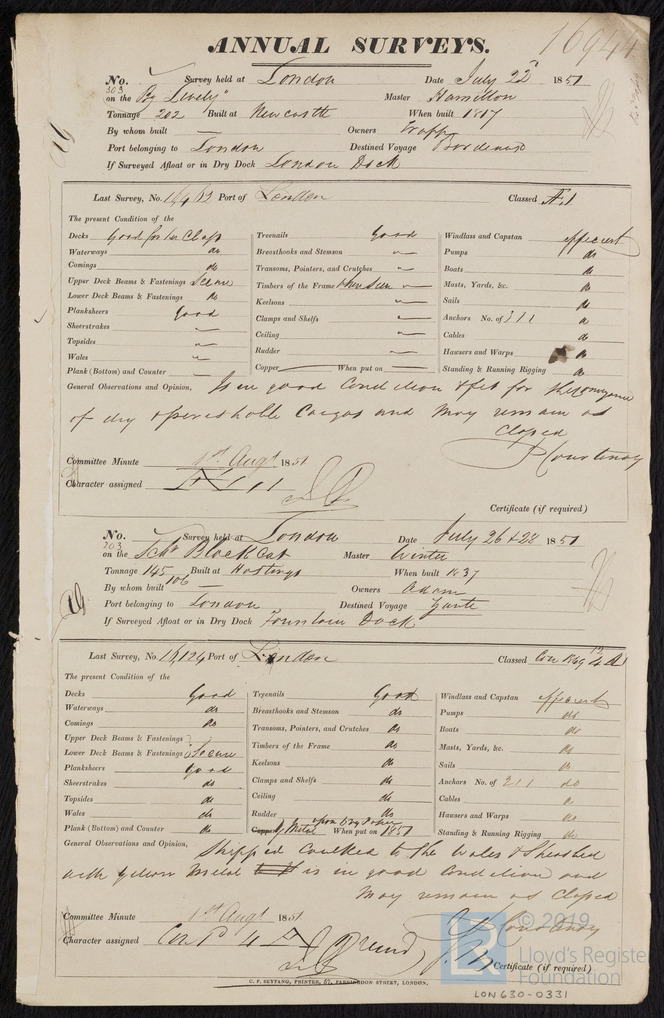 16944
ANNUAL SURVEYS.
No. Survey held at London Date July 22d 1851
303
on the Bg Lively" Master Hamilton
Tonnage 202 Built at Newcastle When built 1817
By whom built — Owners Trapp
Port belonging to London Destined Voyage Bordeaux
If Surveyed Afloat or in Dry Dock London Dock
Last Survey, No. Port of London Classed Æ1
The present Condition of the
Decks Good for her Class Treenails Good Windlass and Capstan efficient
Waterways do Breasthooks and Stemson " Pumps do
Comings do Transoms, Pointers, and Crutches " Boats do
Upper Deck Beams & Fastenings Secure Timbers of the Frame when seen " Masts, Yards, &c. do
Lower Deck Beams & Fastenings do Keelsons " Sails do
Planksheers Good Clamps and Shelfs " Anchors No. of 311 do
Sheerstrakes " Ceiling " Cables do
Topsides " Rudder " Hawsers and Warps do
Wales " Copper — When put on — Standing & Running Rigging do
Plank (Bottom) and Counter "
General Observations and Opinion, Is in good Condition & fit for the conveyance
of dry & perishable Cargos and May remain as
Classed
J Courtenay
Committee Minute 1st Augt 1851
Character assigned Æ 1
Certificate (if required)
No. Survey held at London Date July 26 & 28 1851
203
on the Schr Black Cat Master Winter
Tonnage 145/106 Built at Hastings When built 1837
By whom built Owners Adam
Port belonging to London Destined Voyage Zante
If Surveyed Afloat or in Dry Dock Fountain Dock
Last Survey, No. 16,124 Port of London Classed
The present Condition of the
Decks Good Treenails Good Windlass and Capstan efficient
Waterways do Breasthooks and Stemson do Pumps do
Comings do Transoms, Pointers, and Crutches do Boats do
Upper Deck Beams & Fastenings Timbers of the Frame do Masts, Yards, &c. do
Lower Deck Beams & Fastenings Secure Keelsons do Sails do
Planksheers Good Clamps and Shelfs do Anchors No. of 211 do
Sheerstrakes do Ceiling do Cables do
Topsides do Rudder do Hawsers and Warps do
Wales do Copper Y Metal When put on 1851 Standing & Running Rigging do
Plank (Bottom) and Counter do
General Observations and Opinion, Stripped Caulked to the Wales & Sheathed
with yellow Metal is in good Condition and
May remain as Classed
J Courtenay
Committee Minute 1st Augt 1851
Character assigned
Certificate (if required)
C. F. SEYFANG, PRINTER, 67, FARRINGDON STREET, LONDON.
© 2019
Lloyd's Register
Foundation
LON630-0331